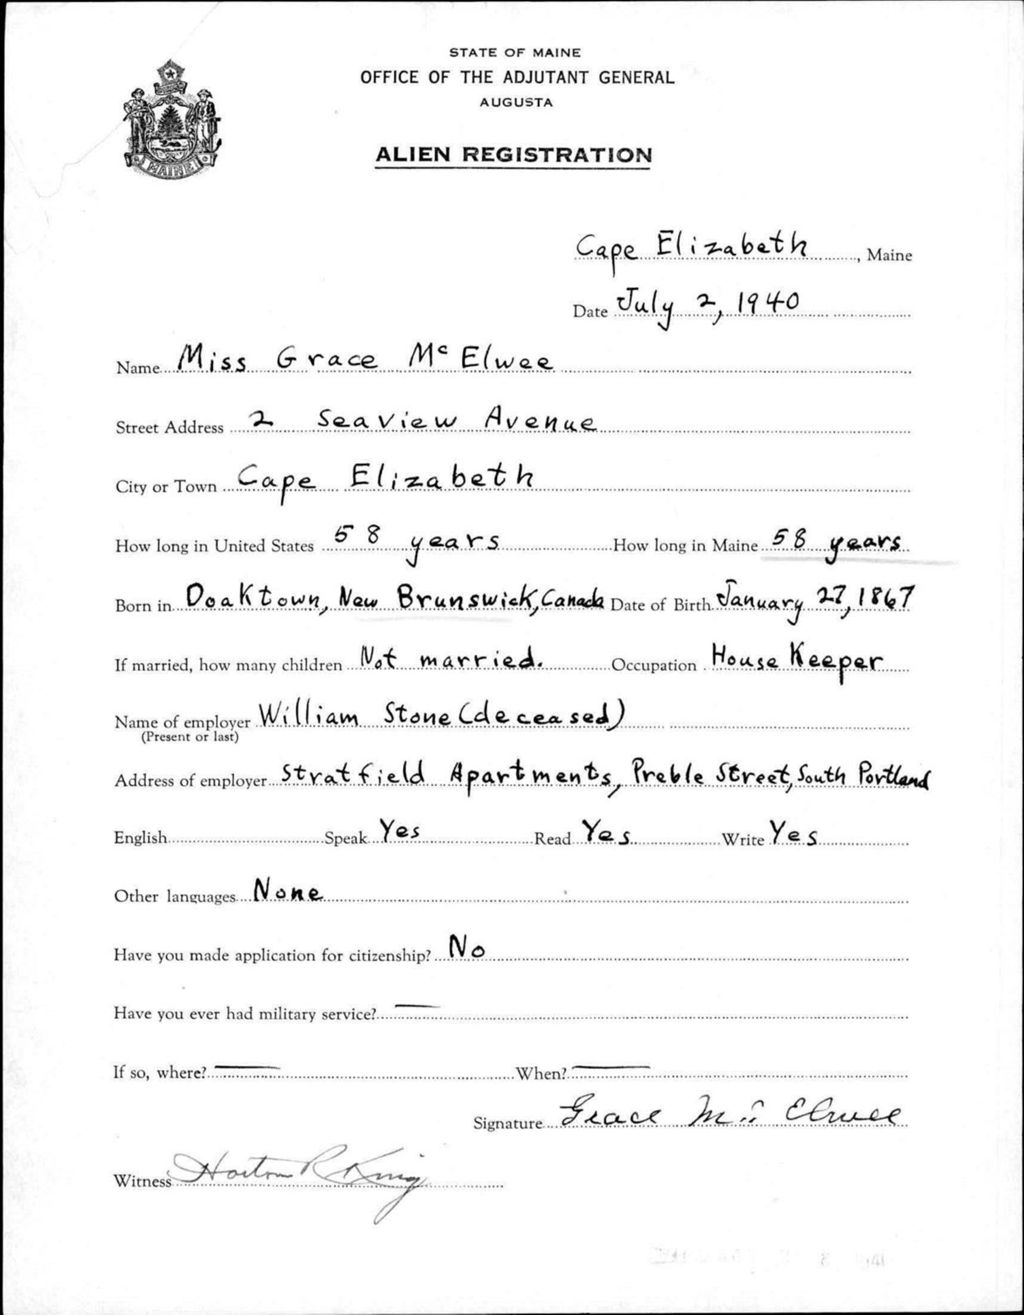 STATE OF MAINE
OFFICE OF THE ADJUTANT GENERAL
AUGUSTA
ALIEN REGISTRATION
MAINE
Cape Elizabeth, Maine
Date July 2, 1940
Name Miss Grace McElwee
Street Address 2 Seaview Avenue
City or Town Cape Elizabeth
How long in United States 58 years How long in Maine 58 years
Born in Doaktown, New Brunswick, Canada Date of Birth January 27, 1867
If married, how many children Not married. Occupation House Keeper
Name of employer William Stone (deceased)
(Present or last)
Address of employer Stratfield Apartments, Preble Street, South Portland
English Speak Yes Read Yes Write Yes
Other languages None
Have you made application for citizenship? No
Have you ever had military service? —
If so, where? — When? —
Signature Grace Mc Elwee
Witness Horton R King